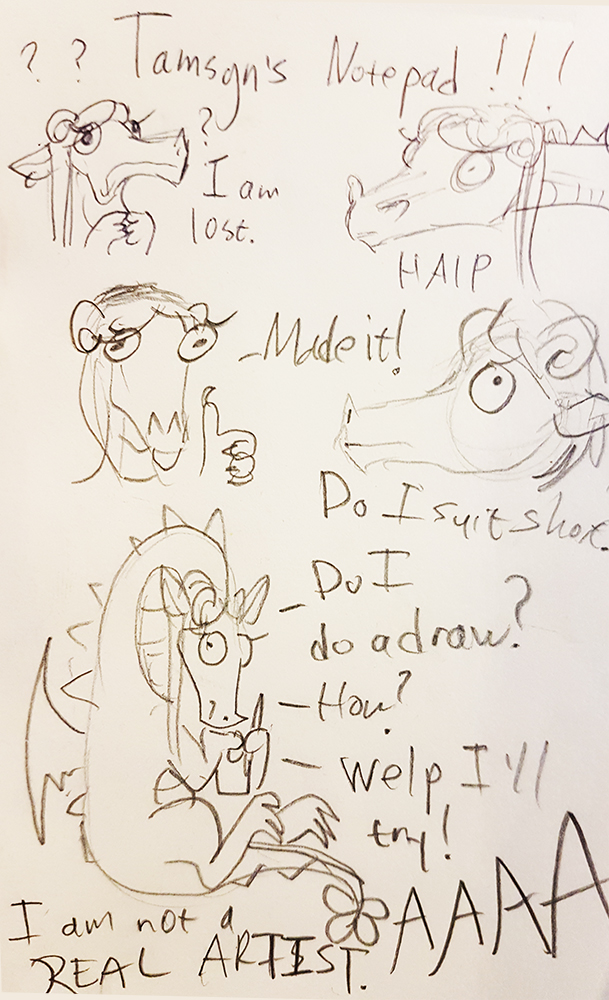 ? ? Tamsyn's Notepad !!!
?
I am
lost.
HALP
- Made it!
Do I suit short.
- Do I
do a draw?
- How?
- Welp I'll
try!
I am not a
REAL ARTIST.
AAAA